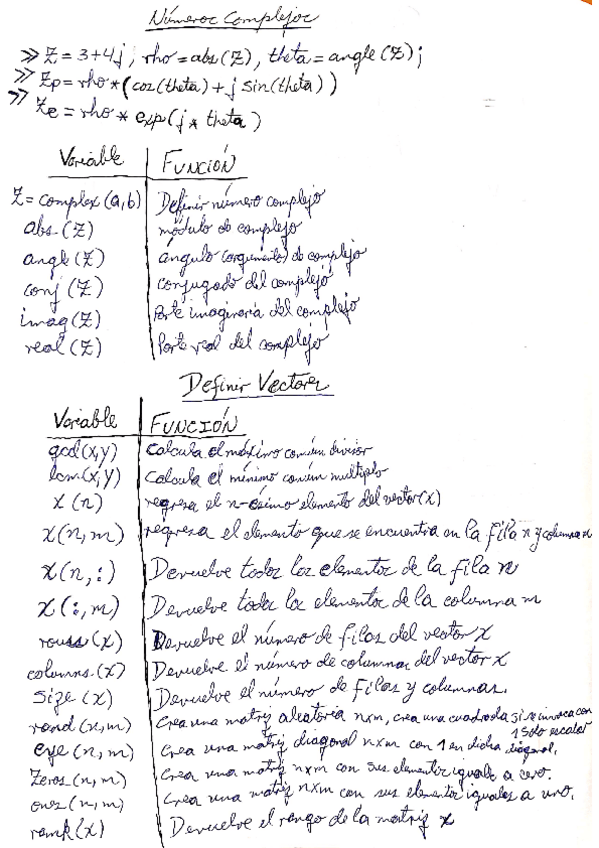 Números Complejos
>> Z = 3+4j, rho = abs(Z), theta = angle(Z);
>> Zp = rho*(cos(theta) + j sin(theta))
>> Ze = rho * exp(j * theta)
Variable FUNCIÓN
Z = complex (a,b) Definir número complejo
abs (Z) módulo de complejo
angle (Z) ángulo (argumento) de complejo
conj (Z) conjugado del complejo
imag (Z) Parte imaginaria del complejo
real (Z) Parte real del complejo
Definir Vectores
Variable FUNCIÓN
gcd(x,y) Calcula el máximo común divisor
lcm(x,y) Calcula el mínimo común multiplo
x (n) regresa el n-ésimo elemento del vector (x)
x(n,m) regresa el elemento que se encuentra en la fila n y columna m
x(n,:) Devuelve todos los elementos de la fila n
x(:,m) Devuelve todos los elementos de la columna m
rows (x) Devuelve el número de filas del vector x
columns (x) Devuelve el número de columnas del vector x
size (x) Devuelve el número de filas y columnas.
rand (n,m) Crea una matriz aleatoria nxm, crea una cuadrada si se invoca con
1 solo escalar
eye (n,m) Crea una matriz diagonal nxm con 1 en dicha diagonal.
Zeros (n,m) Crea una matriz nxm con sus elementos iguales a cero.
ones (n,m) Crea una matriz nxm con sus elementos iguales a uno.
rank (x) Devuelve el rango de la matriz x